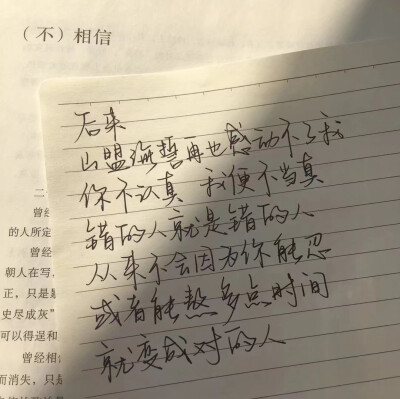 （不）相信
后来
山盟海誓再也感动不了我
你不认真 我便不当真
错的人就是错的人
从来不会因为你能忍
或者能熬多点时间
就变成对的人
二
曾经
的人所定
曾经
朝人在写，
正，只是
史尽成灰”
可以得逞和
曾经相信
而消失，只是